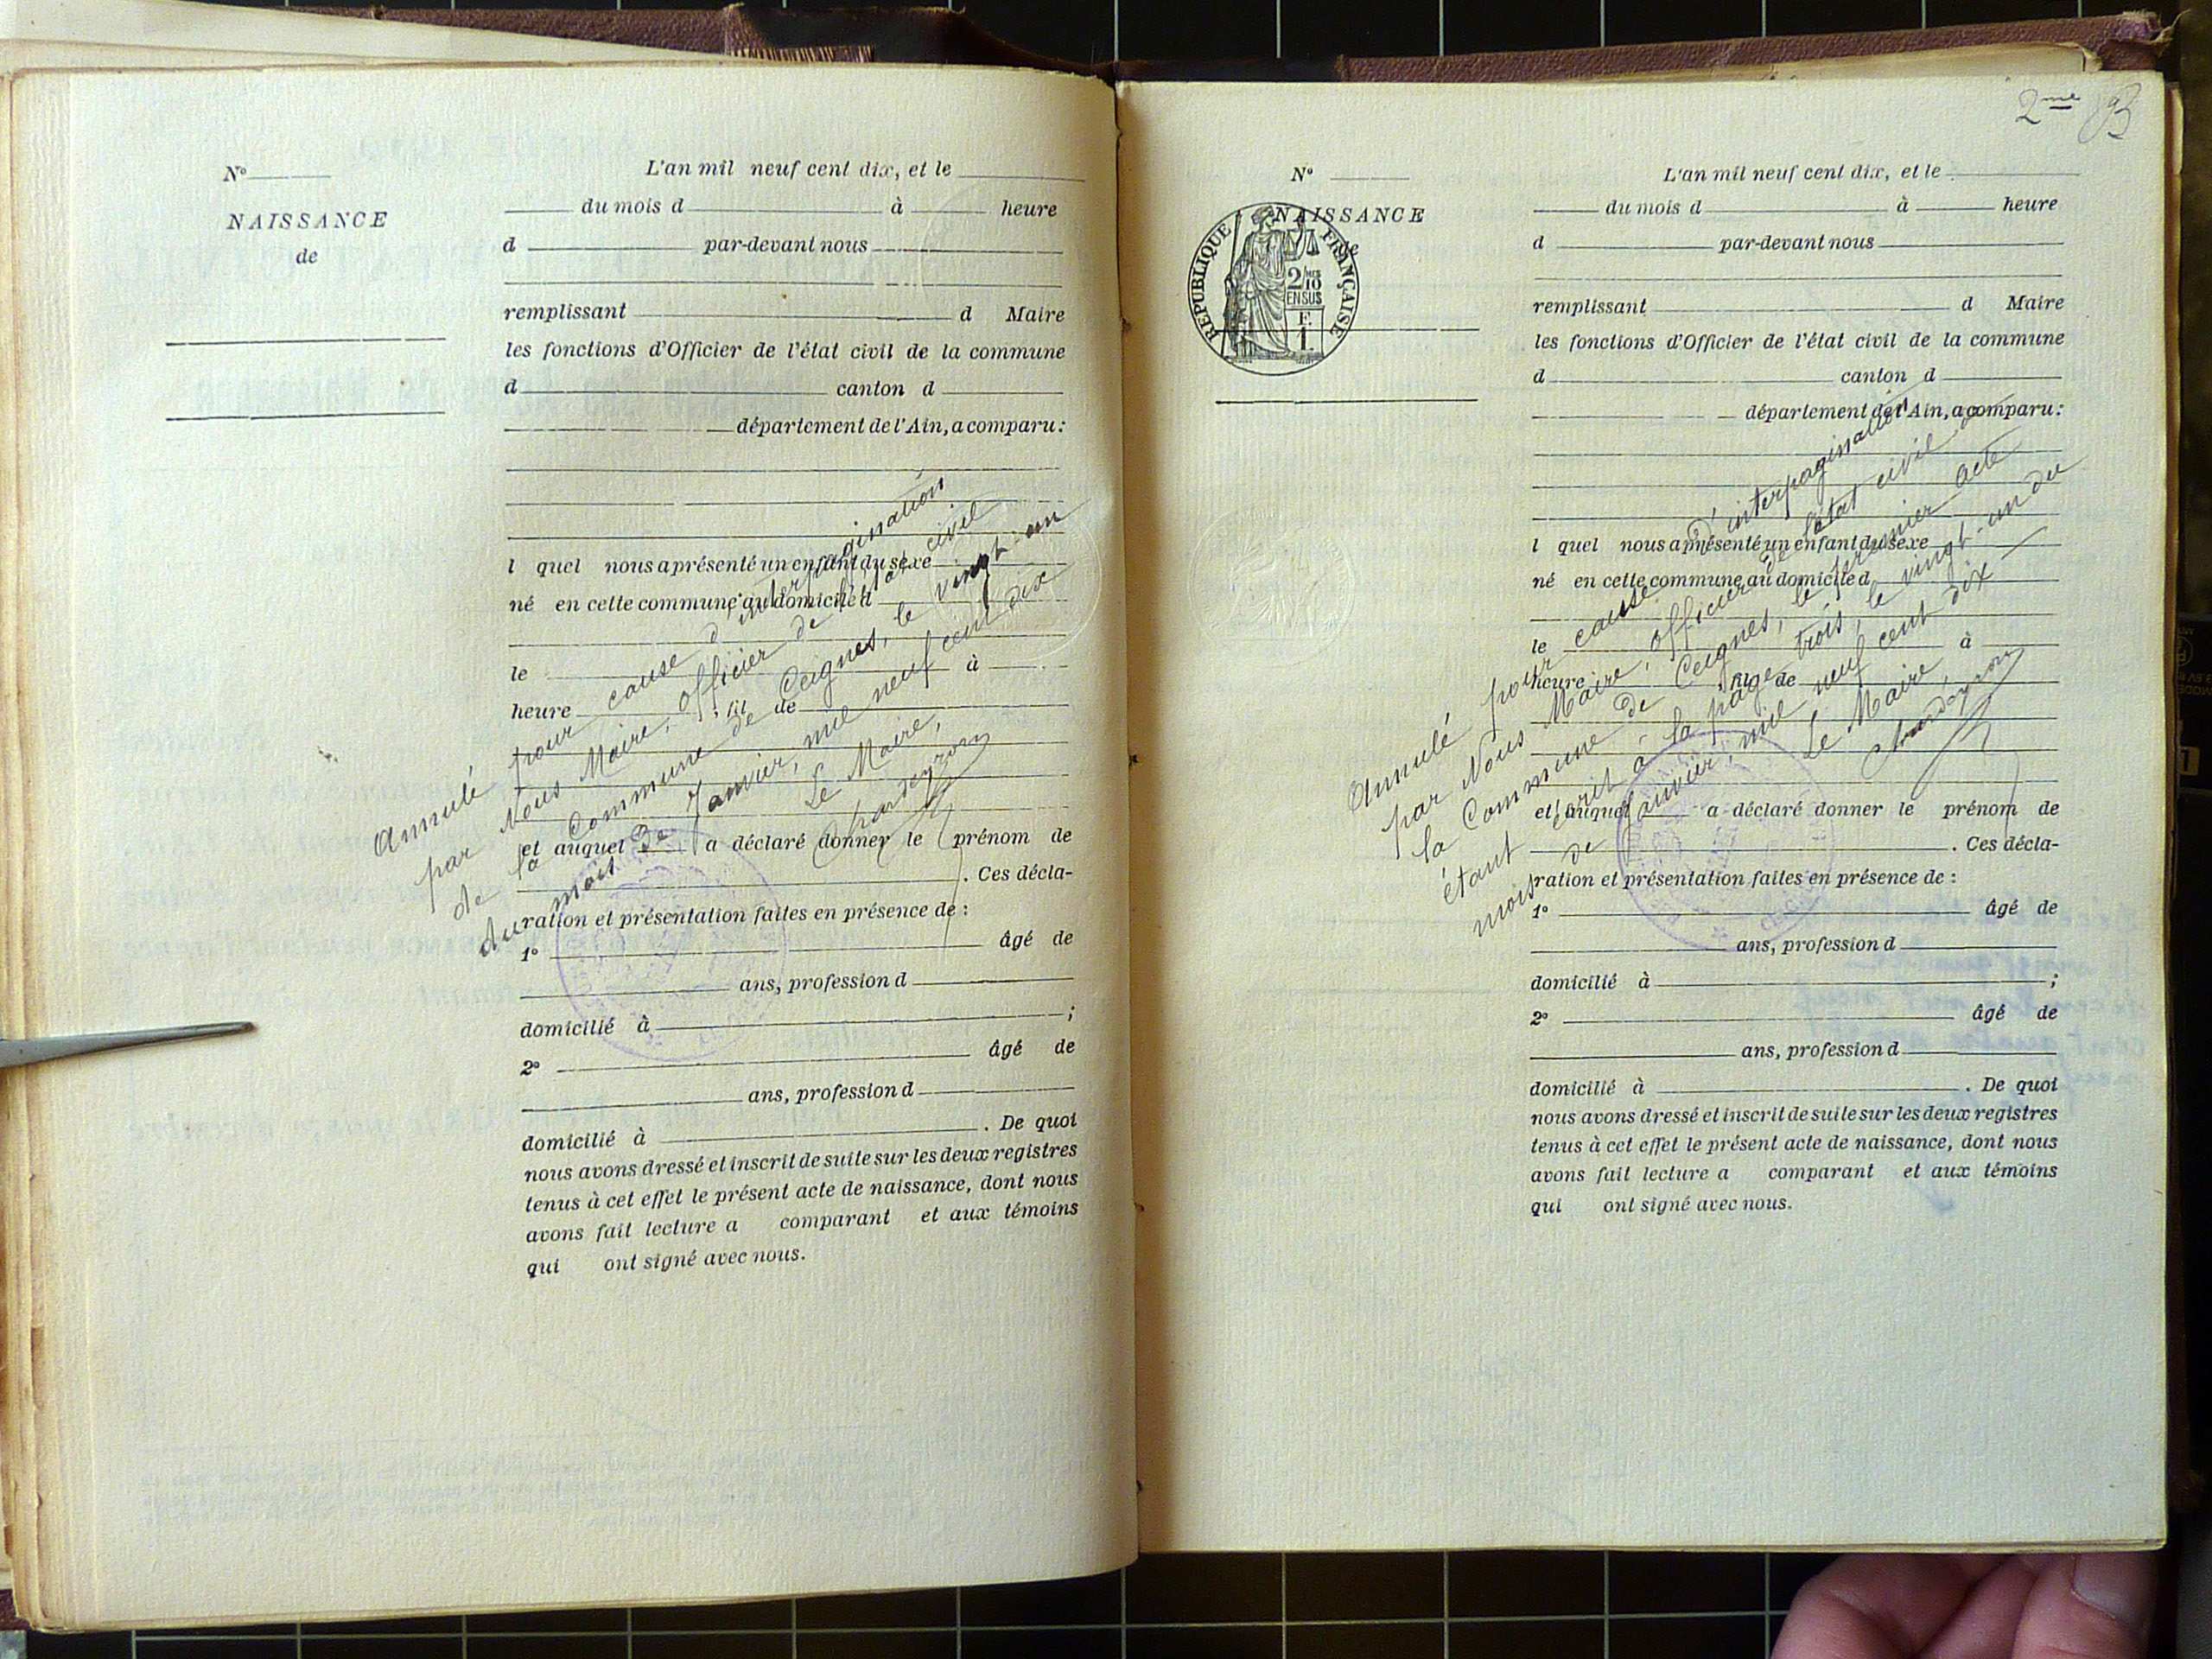 N°
NAISSANCE
de
L'an mil neuf cent dix, et le
du mois d à heure
d par-devant nous
remplissant d Maire
les fonctions d'Officier de l'état civil de la commune
d canton d
département de l'Ain, a comparu:
l quel nous a présenté un enfant du sexe
né en cette commune au domicile d
le à
heure , fil de
et auquel a déclaré donner le prénom de
. Ces décla-
ration et présentation faites en présence de :
1° âgé de
ans, profession d
domicilié à ;
2° âgé de
ans, profession d
domicilié à . De quoi
nous avons dressé et inscrit de suite sur les deux registres
tenus à cet effet le présent acte de naissance, dont nous
avons fait lecture a comparant et aux témoins
qui ont signé avec nous.
Annulé pour cause d'interpagination
par Nous Maire, officier de l'état civil
de la Commune de Ceignes, le vingt-un
du mois de Janvier, mil neuf cent dix
Le Maire,
2me
N°
NAISSANCE
de
REPUBLIQUE FRANÇAISE
2/10 MES
EN SUS
F.
1.
L'an mil neuf cent dix, et le
du mois d à heure
d par-devant nous
remplissant d Maire
les fonctions d'Officier de l'état civil de la commune
d canton d
département de l'Ain, a comparu:
l quel nous a présenté un enfant du sexe
né en cette commune au domicile d
le à
heure , fil de
et auquel a déclaré donner le prénom de
. Ces décla-
ration et présentation faites en présence de :
1° âgé de
ans, profession d
domicilié à ;
2° âgé de
ans, profession d
domicilié à . De quoi
nous avons dressé et inscrit de suite sur les deux registres
tenus à cet effet le présent acte de naissance, dont nous
avons fait lecture a comparant et aux témoins
qui ont signé avec nous.
Annulé pour cause d'interpagination
par Nous Maire, officier de l'état civil de
la Commune de Ceignes, le premier acte
étant écrit à la page trois, le vingt-un du
mois de Janvier, mil neuf cent dix
Le Maire,